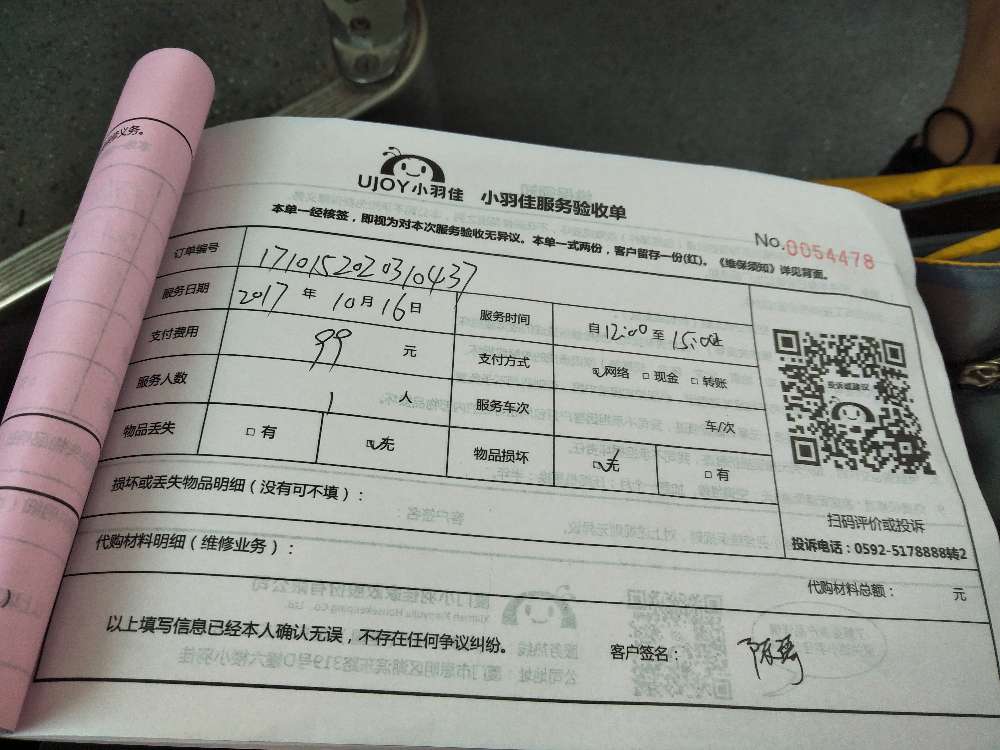 UJOY小羽佳 小羽佳服务验收单
No.0054478
本单一经核签，即视为对本次服务验收无异议。本单一式两份，客户留存一份(红)。《维保须知》详见背面。
订单编号 1710152020310437
服务日期 2017 年 10 月 16 日 服务时间 自 12:00 至 15:00
支付费用 99 元 支付方式 网络 现金 转账
服务人数 1 人 服务车次 车/次
物品丢失 有 无 物品损坏 无 有
投诉或建议
扫码评价或投诉
投诉电话：0592-5178888转2
损坏或丢失物品明细（没有可不填）：
代购材料明细（维修业务）：
代购材料总额： 元
以上填写信息已经本人确认无误，不存在任何争议纠纷。 客户签名：
义务。